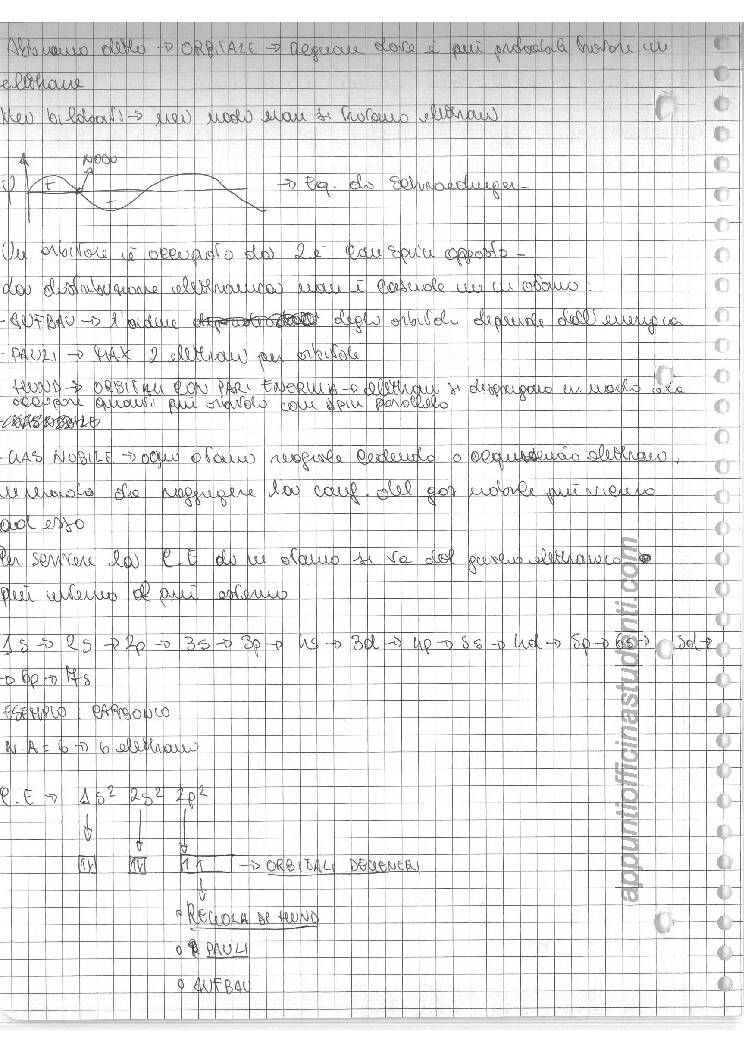 Abbiamo detto → ORBITALE → Regione dove è più probabile trovare un
elettrone
Nei bilobati → nei nodi non si trovano elettroni
NODO
ψ + → Eq. di Schroedinger
-
Un orbitale è occupato da 2 e⁻ con spin opposto -
La distribuzione elettronica non è casuale in un atomo:
- AUFBAU → l'ordine degli orbitali dipende dall'energia
- PAULI → MAX 2 elettroni per orbitale
- HUND → ORBITALI CON PARI ENERGIA → elettroni si dispongono in modo da
occupare quanti più orbitali con spin parallelo
- GAS NOBILE → ogni atomo reagirà cedendo o acquisendo elettroni,
cercando di raggiungere la conf. del gas nobile più vicino
ad esso
Per scrivere la C.E di un atomo si va dal guscio elettronico
più interno al più esterno
1s → 2s → 2p → 3s → 3p → 4s → 3d → 4p → 5s → 4d → 5p → 6s → 5d →
→ 6p → 7s
ESEMPIO: CARBONIO
N.A = 6 → 6 elettroni
C.E → 1s² 2s² 2p²
↑↓ ↑↓ ↑ ↑ → ORBITALI DEGENERI
• REGOLA DI HUND
• PAULI
• AUFBAU
appuntiofficinastudenti.com